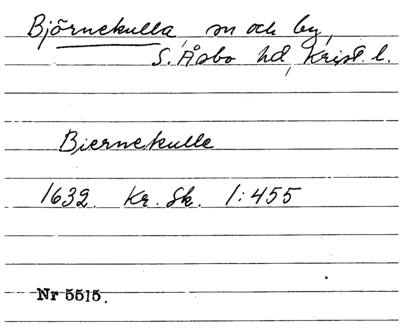 Björnekulla, sn och by,
S. Åsbo hd, Krist. l.
Biernekulle
1632. Kr. Sk. 1:455
Nr 5515.